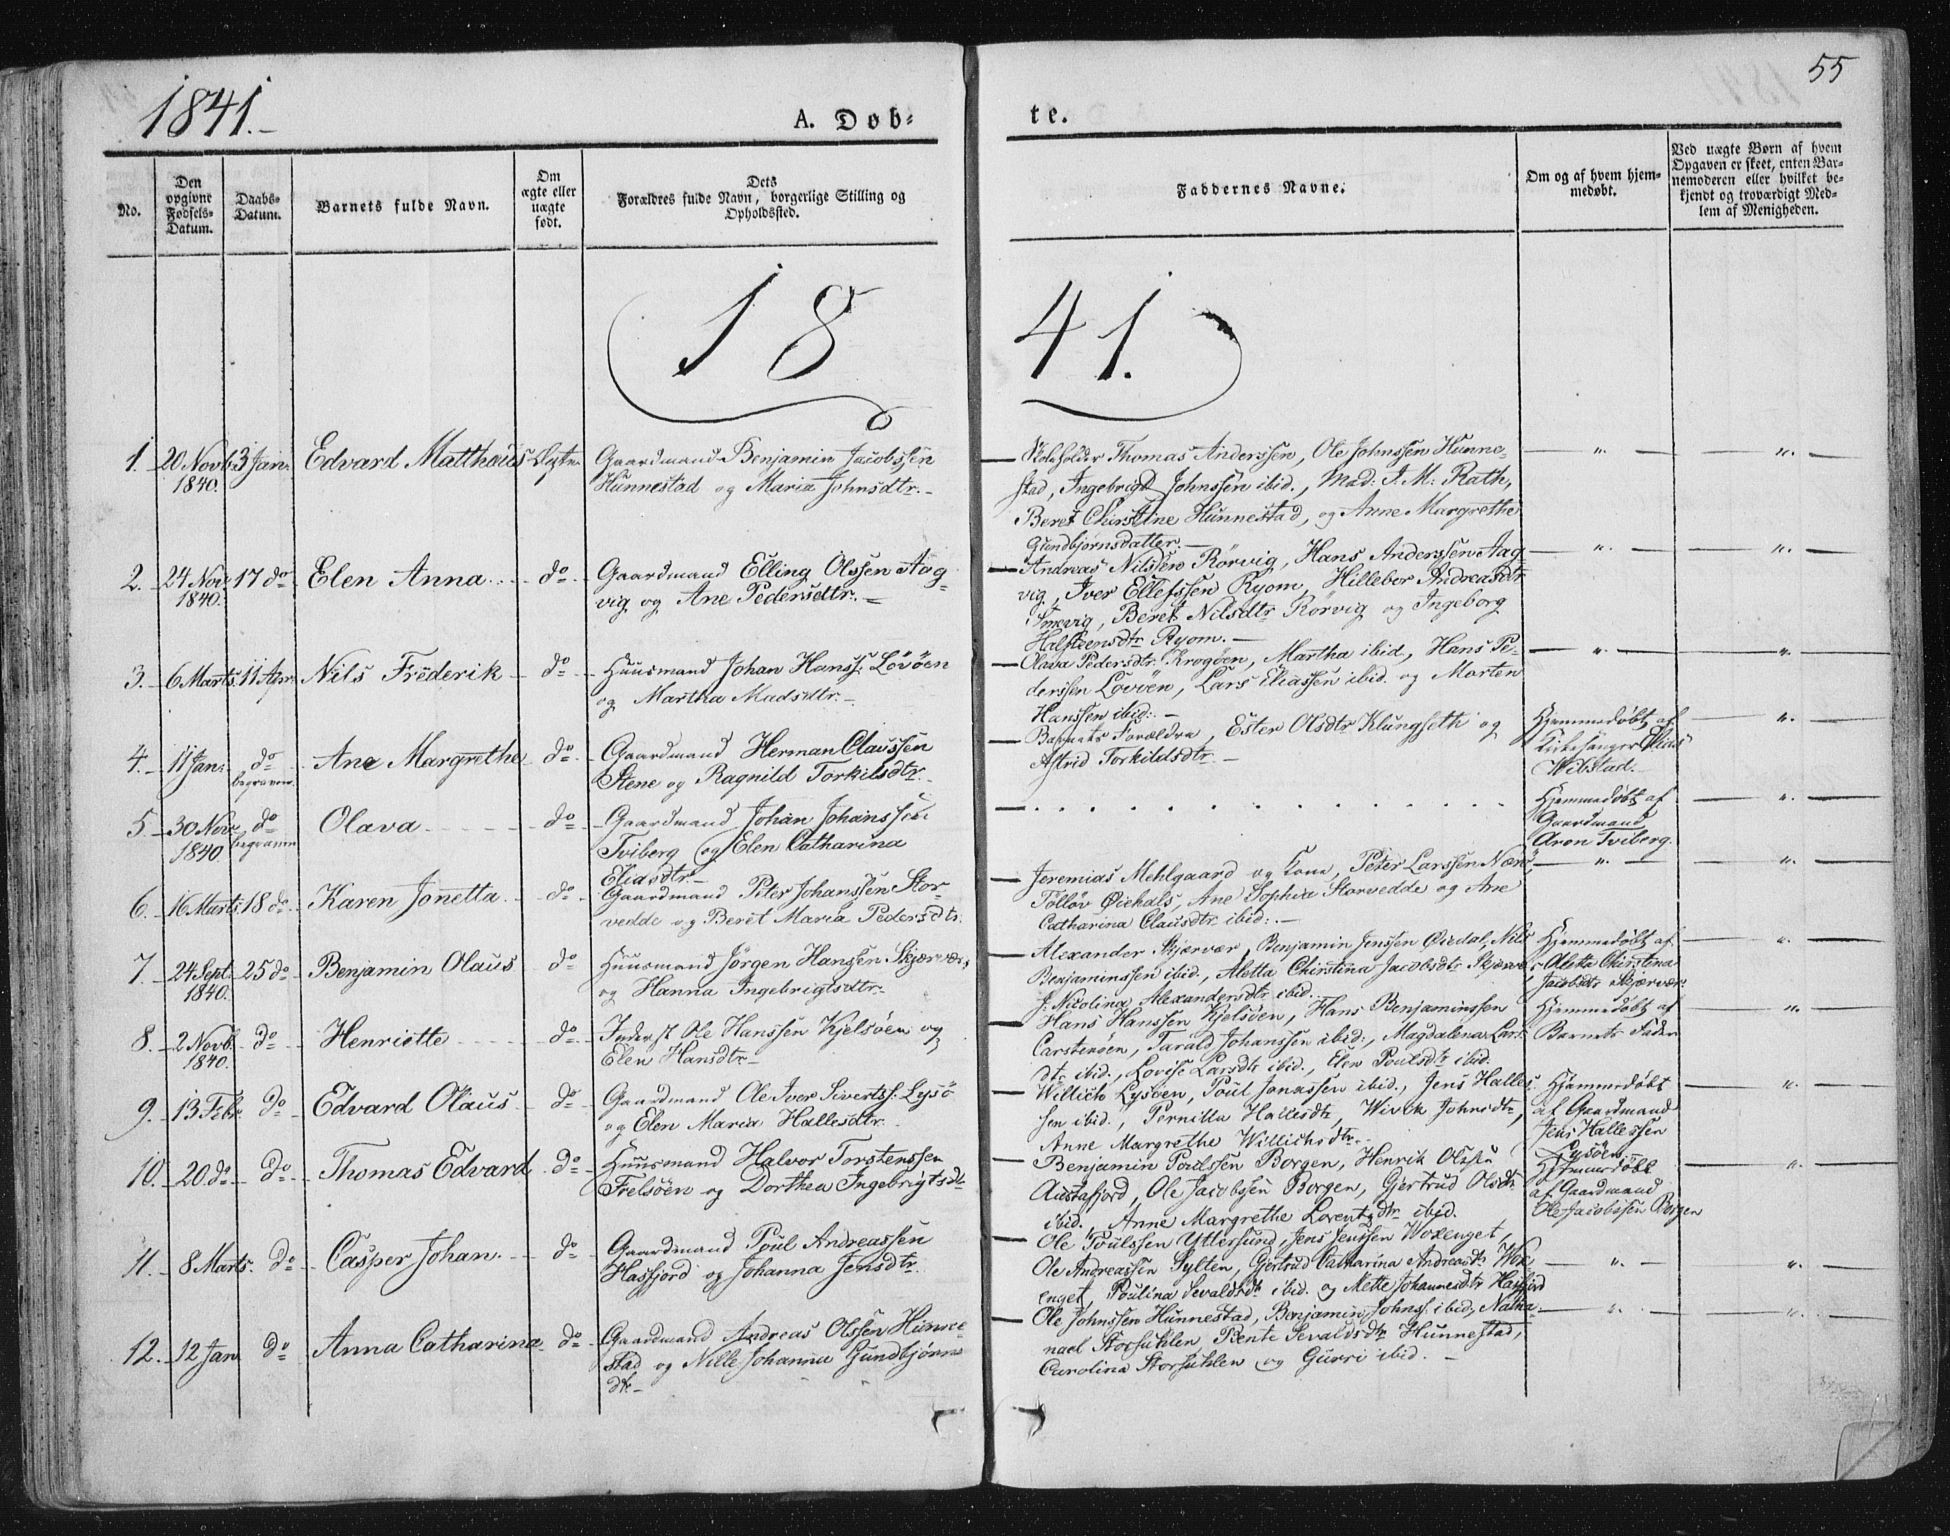 1841.
55
A. Døb-
te.
No.
Den opgivne Fødsels-Datum.
Daabs-Datum.
Barnets fulde Navn.
Om ægte eller uægte født.
Dets
Forældres fulde Navn, borgerlige Stilling og Opholdssted.
Faddernes Navne.
Om og af hvem hjem-
medøbt.
Ved uægte Børn af hvem
Opgaven er skeet, enten Bar-
nemoderen eller hvilket be-
kjendt og troværdigt Med-
lem af Menigheden.
18
41.
1. 20 Novb. 1840. 3 Jan. Edvard Matthæus Ægte
Gaardmand Benjamin Jacobssen
Hunnestad og Maria Johnsdtr.
Thomas Anderssen, Ole Johnssen Hunne-
stad, Ingebrigt Johnssen ibid., Mad: J. M: Rath,
Beret Christine Hunnestad, og Anne Margrethe
Gundbjørnsdatter.
2. 24 Nov. 1840. 17 do Elen Anna do
Gaardmand Elling Olssen Aag-
vig og Ane Pedersdtr.
Andreas Nilssen Rörvig, Hans Anderssen Aag
vig, Iver Ellefssen Ryom, Hillebor Andreasdtr
Smevig, Beret Nilsdtr Rörvig og Ingeborg
Halsteensdtr Ryom.
3. 6 Marts. 11 Apr. Nils Frederik do
Huusmand Johan Hanss. Lövöen
og Martha Madsdtr.
Olava Pedersdtr. Krogöen, Martha ibid, Hans Pe-
derssen Lövöen, Lars Eliassen ibid. og Morten
Hanssen ibid:
4. 11 Jan. do begraven Ane Margrethe do
Gaardmand Herman Claussen
Stene og Ragnild Torkilsdtr.
Barnets Forældre, Ester Olsdtr Klungseth og
Astrid Torkildsdtr.
Hjemmedøbt af
Kirkesanger Elias
Wibstad.
5. 30 Nov. 1840 do begraven Olava do
Gaardmand Johan Johanssen
Tviberg og Elen Catharina
Eliasdtr.
Hjemmedøbt af
Gaardmand
Aron Tviberg.
6. 16 Marts. 18 do Karen Jonetta do
Gaardmand Peter Johanssen Stor-
vedde og Beret Maria Pedersdtr.
Jeremias Mehlgaard og Kone, Peter Larssen Nærö,
Töllöv Öiehals, Ane Sophia Storvedde og Ane
Catharina Clausdtr ibid:
7. 24 Sept 1840. 25 do Benjamin Olaus do
Huusmand Jörgen Hansen Skjærvær,
og Hanna Ingebrigtsdtr.
Alexander Skjærvær, Benjamin Jenssen Öiedal, Nils
Benjaminssen ibid, Aletta Christina Jacobsdtr Skjærvær
J. Nicolina Alexandersdtr ibid.
Hjemmedøbt af
Aletta Christina
Jacobsdtr Skjærvær.
8. 2 Novb. 1840. do Henriette do
Inderst Ole Hanssen Kjelsöen og
Elen Hansdtr.
Hans Hanssen Kjelsöen, Hans Benjaminssen
Carstenöen, Tarald Johanssen ibid:, Magdalena Lars-
dtr ibid., Lovise Larsdtr ibid., Elen Poulsdtr ibid.
Hjemmedøbt af
Barnets Fader
9. 13 Febr. do Edvard Olaus do
Gaardmand Ole Iver Sivertss. Lysö
og Elen Maria Hallesdtr.
Willich Lysöen, Poul Jonassen ibid., Jens Halles-
sen ibid., Pernilla Hallesdtr, Wivik Johnsdtr,
Anne Margrethe Willichsdtr.
Hjemmedøbt
af Gaardmand
Jens Hallessen
Lysöen
10. 20 do do Thomas Edvard do
Huusmand Halvor Torstenssen
Frelsöen og Dorthea Ingebrigtsdtr
Benjamin Poulssen Borgen, Henrik Olssen
Austafjord, Ole Jacobssen Borgen, Gjertrud Olsdtr
ibid. Anne Margrethe Lorentzdtr ibid.
Hjemmedøbt
af Gaardmand
Ole Jacobssen Borgen
11. 8 Marts. do Casper Johan do
Gaardmand Poul Andreassen
Hasfjord og Johanna Jensdtr.
Ole Poulssen Yttersund, Jens Jenssen Woxenget,
Ole Andreassen Sylten, Gjertrud Catharina Andreasdtr Wox-
enget, Poulina Sevaldsdtr ibid. og Mette Johannesdtr Hasfjord
12. 12 Jan do Anna Catharina do
Gaardmand Andreas Olssen Hunne-
stad og Nille Johanna Gundbjörns
dtr.
Ole Johnssen Hunnestad, Benjamin Johnss. ibid, Natha-
nael Storsuhlen, Bente Sevaldsdtr Hunnestad,
Carolina Storsuhlen og Gurri ibid.